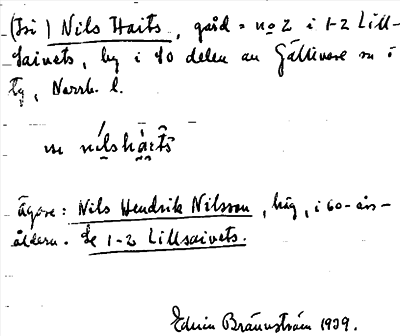 (Fri) Nils Haits, gård = no 2 i 1-2 Lill-
saivets, by i Sö delen av Gällivare sn i
lg, Norrb. l.
nílshàits
Ägare: Nils Hendrik Nilsson, häg, i 60-års-
åldern. Se 1-2 Lillsaivets.
Edvin Brännström 1939.